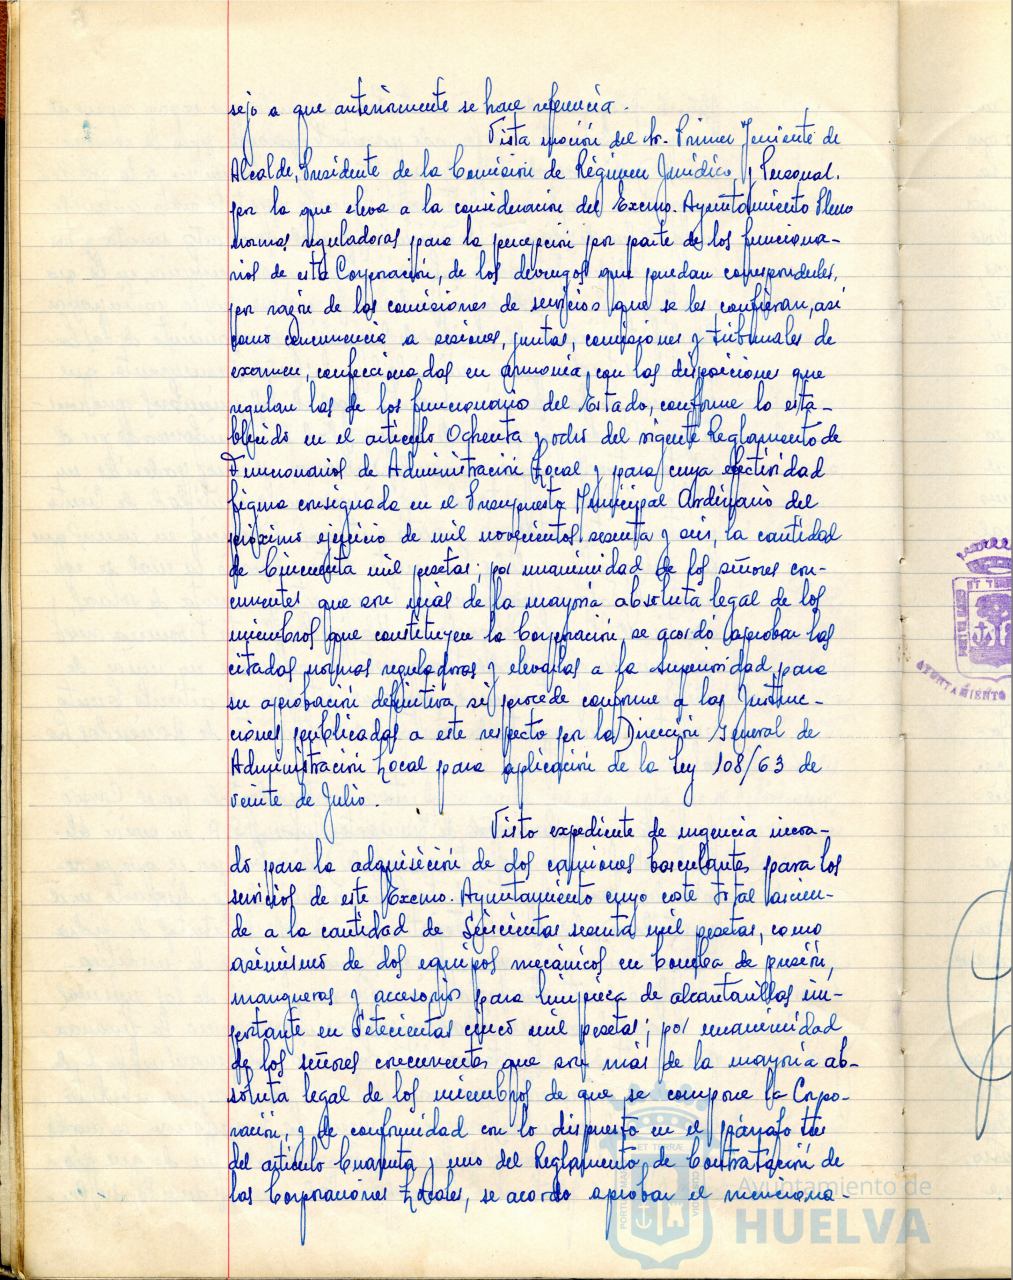 sejo a que anteriormente se hace referencia.
Vista moción del Sr. Primer Teniente de
Alcalde, Presidente de la Comisión de Régimen Jurídico y Personal,
por la que eleva a la consideración del Excmo. Ayuntamiento Pleno
normas reguladoras para la percepción por parte de los funciona-
rios de esta Corporación, de los devengos que puedan corresponderles,
por razón de las comisiones de servicios que se les confieran, así
como concurrencia a sesiones, juntas, comisiones y tribunales de
examen, confeccionadas en armonía con las disposiciones que
regulan las de los funcionario del Estado, conforme lo esta-
blecido en el artículo Ochenta y ocho del vigente Reglamento de
Funcionarios de Administración Local y para cuya efectividad
figura consignada en el Presupuesto Municipal Ordinario del
próximo ejercicio de mil novecientos sesenta y seis, la cantidad
de Cincuenta mil pesetas; por unanimidad de los señores con-
currentes que son más de la mayoría absoluta legal de los
miembros que constituyen la Corporación, se acordó aprobar las
citadas normas reguladoras y elevarlas a la Superioridad para
su aprobación definitiva si procede conforme a las Instruc-
ciones publicadas a este respecto por la Dirección General de
Administración Local para aplicación de la Ley 108/63 de
veinte de Julio.
Visto expediente de urgencia incoa-
do para la adquisición de dos camiones basculantes para los
servicios de este Excmo. Ayuntamiento cuyo coste total ascien-
de a la cantidad de Seiscientas sesenta mil pesetas, como
asimismo de dos equipos mecánicos en bomba de presión,
mangueras y accesorios para limpieza de alcantarillas im-
portante en Setecientas cinco mil pesetas; por unanimidad
de los señores concurrentes que son más de la mayoría ab-
soluta legal de los miembros de que se compone la Corpo-
ración, y de conformidad con lo dispuesto en el párrafo tres
del artículo Cuarenta y uno del Reglamento de Contratación de
las Corporaciones Locales, se acordó aprobar el menciona-
AYUNTAMIENTO
Ayuntamiento de
HUELVA